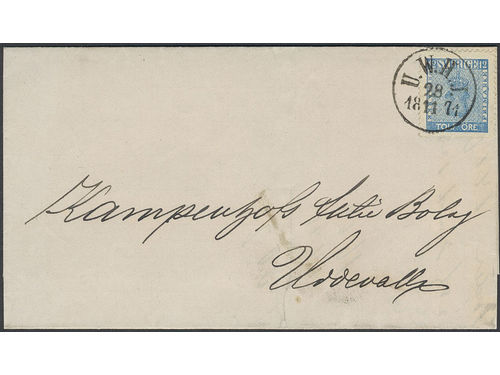 12 SVERIGE 12
U.W.H.J
28
18 11 71
TOLF ÖRE
Kampenhofs Aktie Bolag
Uddevalla